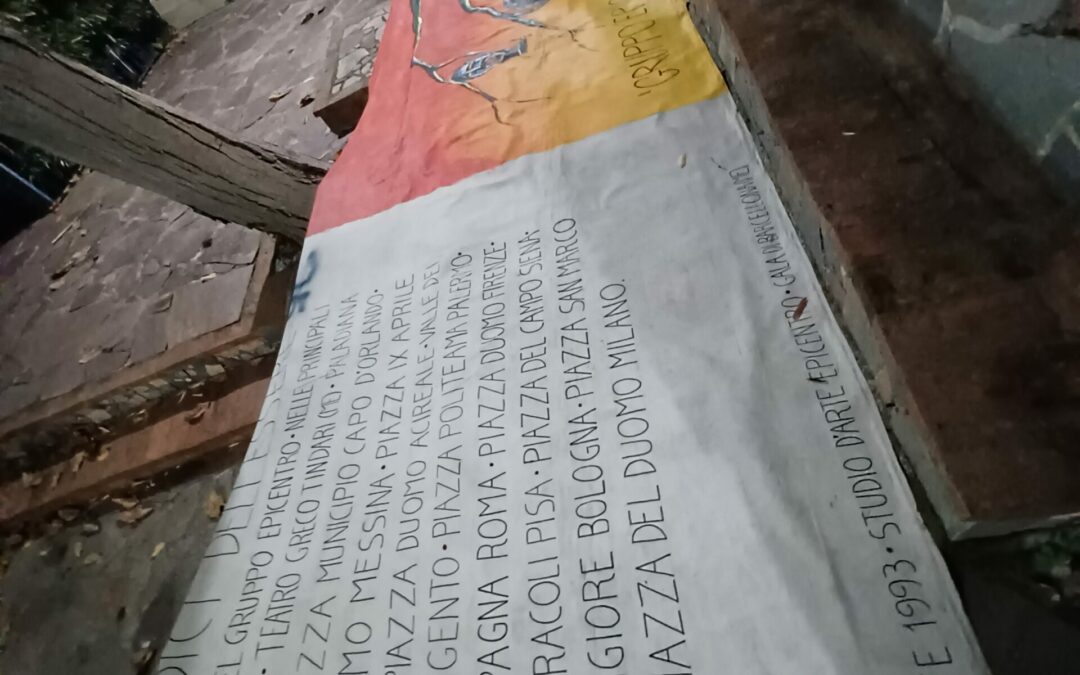 GRUPPO
DICI DELL'ESSERE
EL GRUPPO EPICENTRO • NELLE PRINCIPALI
• TEATRO GRECO TINDARI (ME) • PALADIANA
ZZA MUNICIPIO CAPO D'ORLANDO •
MO MESSINA • PIAZZA IX APRILE
PIAZZA DUOMO ACIREALE • VALLE DEI
GENTO • PIAZZA POLITEAMA PALERMO •
PAGNA ROMA • PIAZZA DUOMO FIRENZE •
RACOLI PISA • PIAZZA DEL CAMPO SIENA •
GIORE BOLOGNA • PIAZZA SAN MARCO
IAZZA DEL DUOMO MILANO.
E 1993 • STUDIO D'ARTE EPICENTRO • GALA DI BARCELLONA (ME)